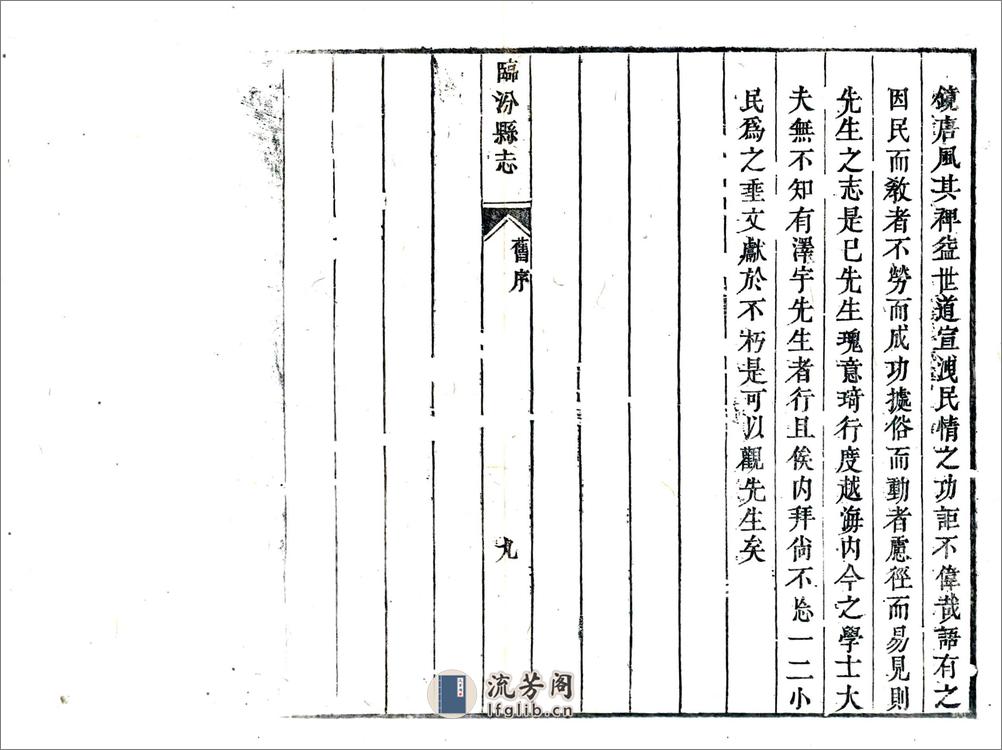 鏡唐風其裨益世道宣洩民情之功詎不偉哉語有之
因民而教者不勞而成功據俗而動者慮徑而易見則
先生之志是已先生瑰意琦行度越海内今之學士大
夫無不知有澤宇先生者行且俟内拜尙不忘一二小
民爲之垂文獻於不朽是可以觀先生矣
臨汾縣志
舊序
九
流芳阁
lfglib.cn